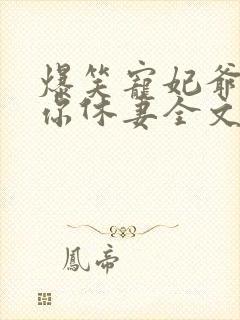 爆笑寵妃爺
你休妻全文
鳳帝